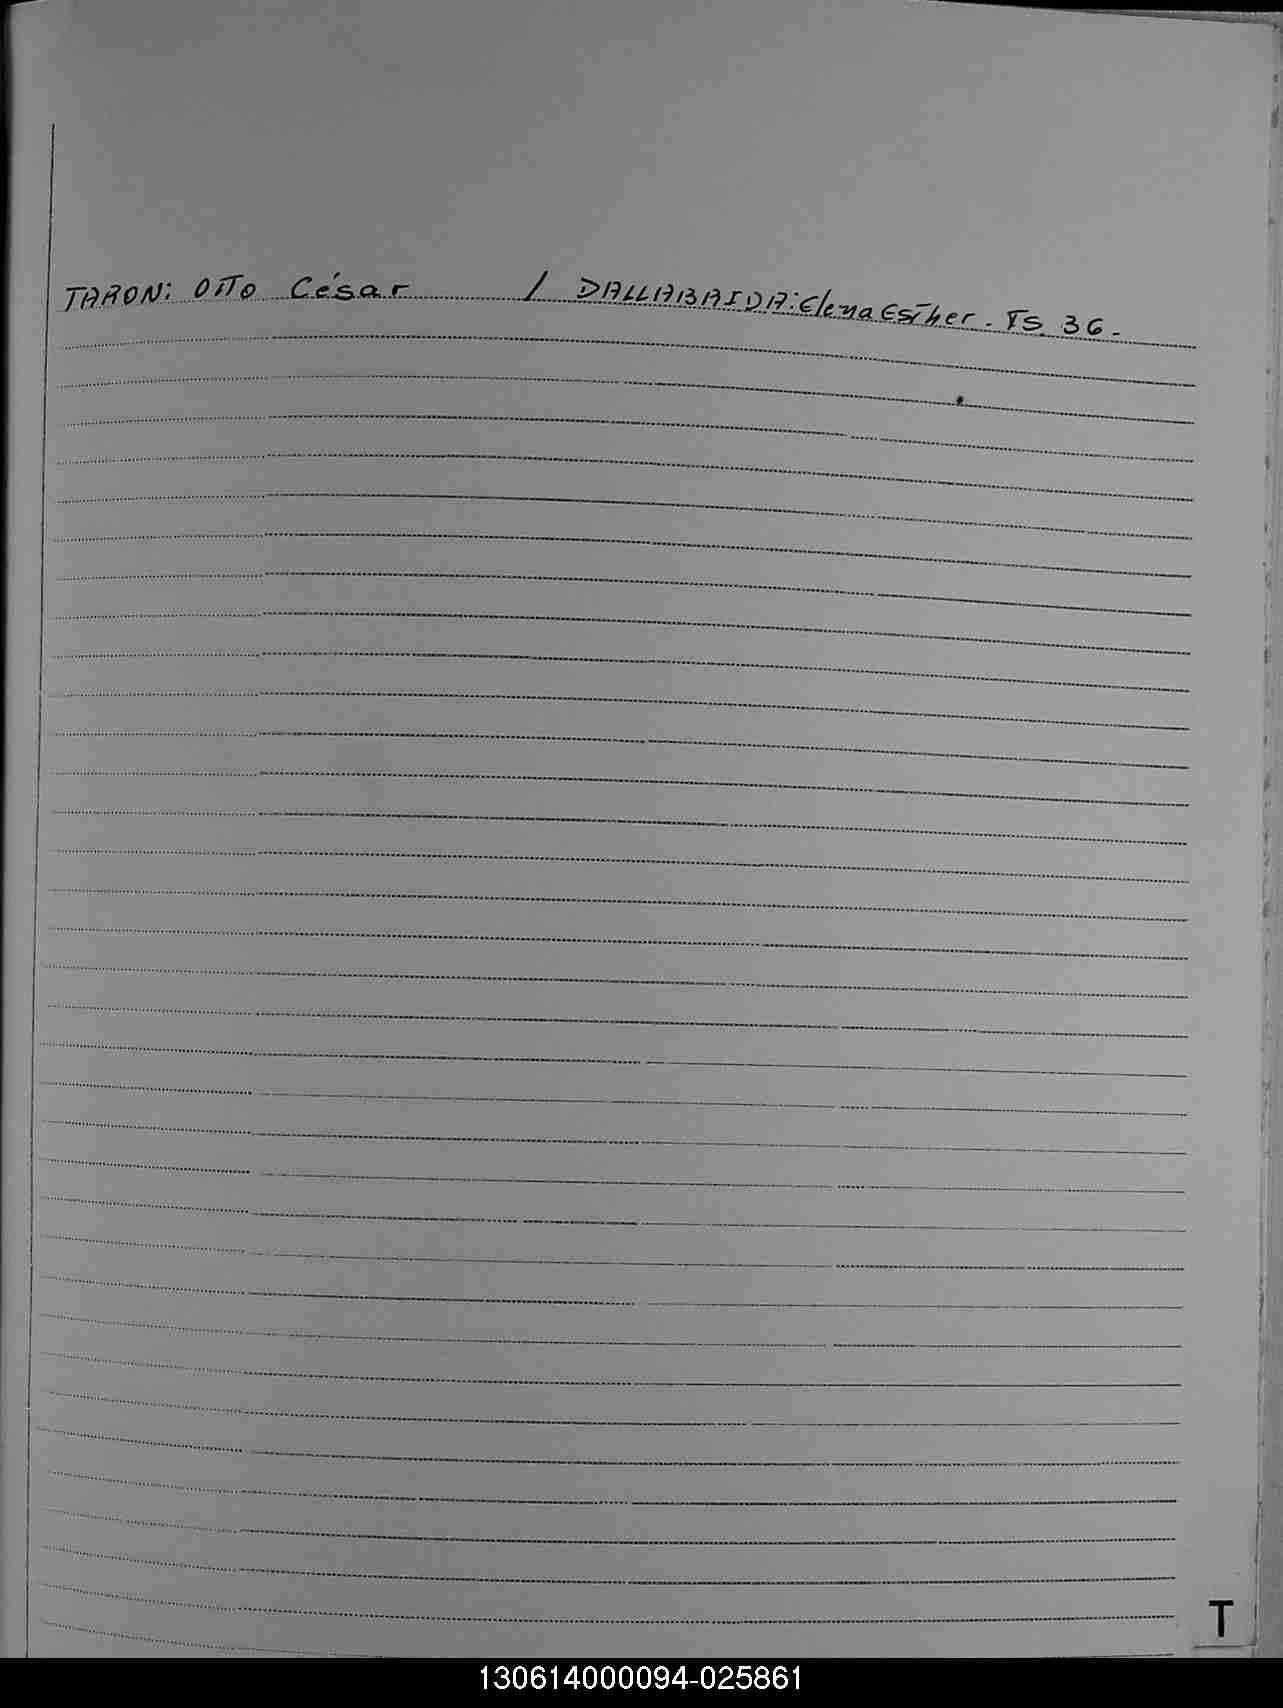 TARONi OTTO César / DALLABAIDA: Elena Esther. Fs. 36.-
T
130614000094-025861